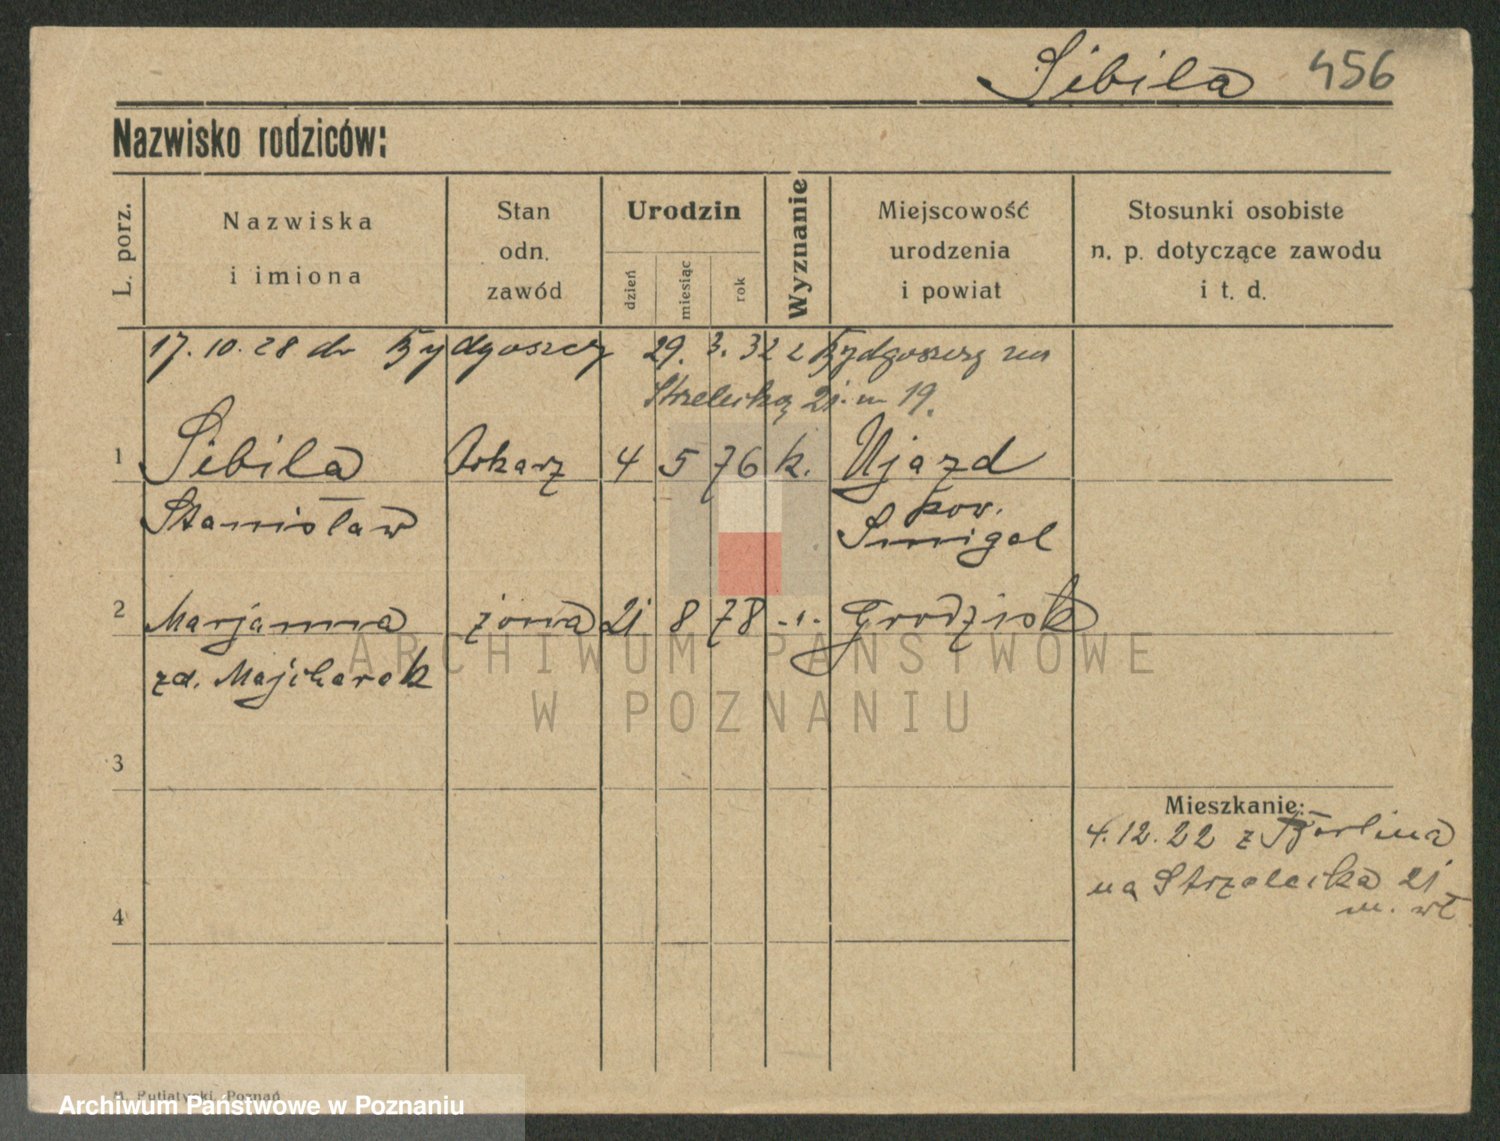 Sibila 456
Nazwisko rodziców:
L. porz.
Nazwiska
i imiona
Stan
odn.
zawód
Urodzin
dzień
miesiąc
rok
Wyznanie
Miejscowość
urodzenia
i powiat
Stosunki osobiste
n. p. dotyczące zawodu
i t. d.
17.10.28 do Bydgoszczy 29. 3. 32 z Bydgoszczy na
Strzelecką 21 m 19.
1 Sibila 4 5 76 k. Ujazd
Stanisław pow.
Smigel
2 Marjanna żona 21 8 78 Grodzisk
zd. Majcharek
3
Mieszkanie:
4.12.22 z Berlina
na Strzelecka 21
4
m. wł
ARCHIWUM PAŃSTWOWE
W POZNANIU
Putiatycki, Poznań
Archiwum Państwowe w Poznaniu